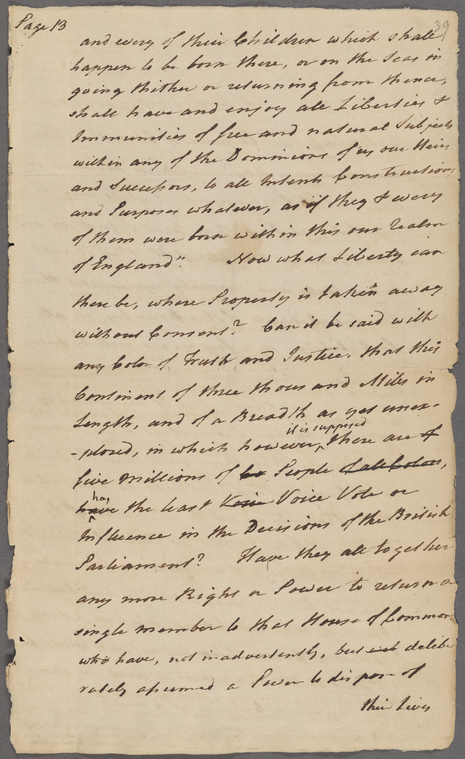 Page 13
39
and every of their Children which shall
happen to be born there, or on the Seas in
going thither or returning from thence,
shall have and enjoy all Liberties &
Immunities of free and natural Subjects
within any of the Dominions of us our Heirs
and Successors, to all Intents Constructions
and Purposes whatever, as if they & every
of them were born within this our Realm
of England". Now what Liberty can
there be, where Property is taken away
without Consent? Can it be said with
any Color of Truth and Justice, that this
Continent of three thousand Miles in
Length, and of a Breadth as yet unex-
-plored, in which however, there are
it is supposed
five Millions of People of all Colors,
has
have the least Voice Vote or
Influence in the Decisions of the British
Parliament? Have they all together
any more Right or Power to return a
single member to that House of Commons
who have, not inadvertently, but delibe
rately assumed a Power to dispose of
their Lives